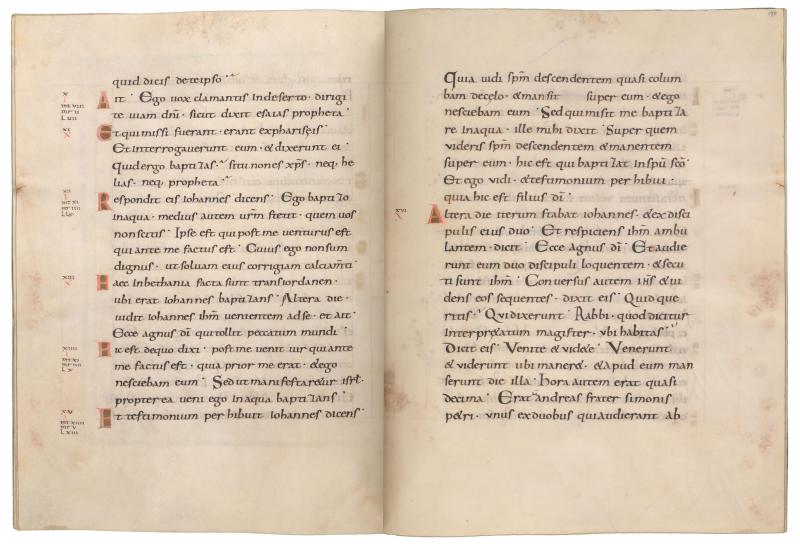 quid dicis deteipso
Ait · Ego uox clamantis Indeserto · dirigi
te uiam dnī · sicut dixit esaias propheta
Et qui missi fuerant · erant expharisęis
Et Interrogauerunt eum · & dixerunt ei
Quid ergo baptizas · si tu non es xp̄s · neq; he
lias · neq; propheta
Respondit eis Iohannes dicens · Ego baptizo
inaqua · medius autem urm̄ stetit · quem uos
nonscitis · Ipse est qui post me uenturus est
qui ante me factus est · Cuius ego non sum
dignus · ut soluam eius corrigiam calciamti
Haec inbethania facta sunt transiordanen ·
ubi erat Iohannes baptizans · Altera die ·
uidit Iohannes ihm̄ uenientem adse · et ait
Ecce agnus dī qui tollit peccatum mundi
Hic est dequo dixi · post me uenit uir qui ante
me factus est · quia prior me erat · & ego
nesciebam eum · Sed ut manifestar&ur isrl ·
propter ea ueni ego Inaqua baptizans
Et testimonium per hibuit Iohannes dicens
X
XI
XII
XIII
XIIII
XV
Quia uidi spm̄ descendentem quasi colum
bam decęlo · & mansit super eum · & ego
nesciebam eum · Sed qui misit me baptiza
re Inaqua · ille mihi dixit · Super quem
uideris spm̄ descendentem & manentem
super eum · hic est qui baptizat Inspū scō
Et ego uidi · & testimonium per hibui ·
quia hic est filius dī
XVI
Altera die iterum stabat Iohannes · & ex disci
pulis eius duo · Et respiciens ihm̄ ambu
lantem · dicit · Ecce agnus dī · Et audie
runt eum duo discipuli loquentem · & secu
ti sunt ihm̄ · Conuersus autem ihs̄ & ui
dens eos sequentes · dixit eis · Quid que
ritis · Qui dixerunt · Rabbi · quod dicitur
Interpr&atum magister · ubi habitas
Dicit eis · Venite & uid&e · Venerunt
& uiderunt ubi maner& · & apud eum man
serunt die illa · hora autem erat quasi
decima · Erat andreas frater simonis
p&ri · unus exduobus qui audierant ab